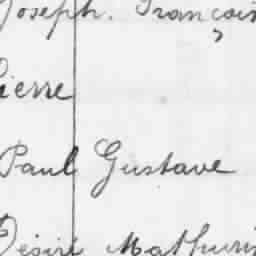 Joseph. François
Pierre
Paul Gustave
Désiré Mathurin